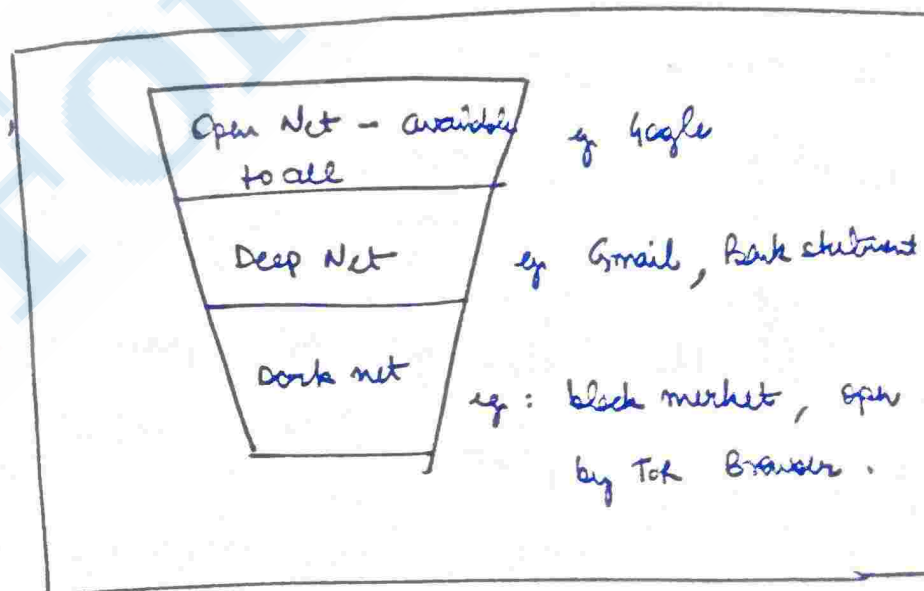 Open Net - available eg Google
to all
Deep Net eg Gmail, Bank statement
Dark net
eg: black market, open
by Tor Browser.